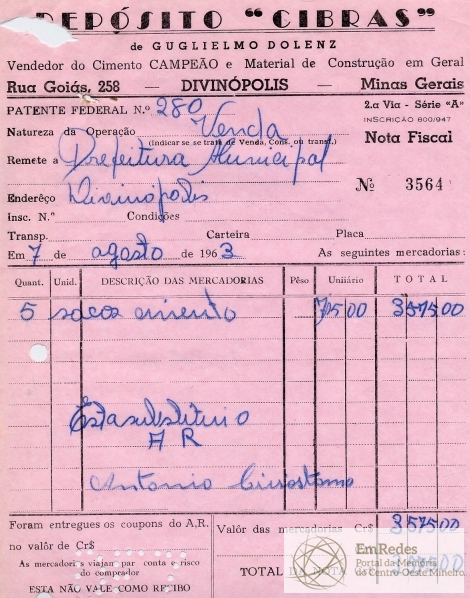 DEPÓSITO "CIBRAS"
de GUGLIELMO DOLENZ
Vendedor do Cimento CAMPEÃO e Material de Construção em Geral
Rua Goiás, 258 — DIVINÓPOLIS — Minas Gerais
PATENTE FEDERAL N.º 280
2.a Via - Série "A"
INSCRIÇÃO 800/947
Natureza da Operação Venda
(Indicar se se trata de Venda, Cons. ou transf.)
Nota Fiscal
Remete a Prefeitura Municipal
Nº 3564
Enderêço Divinópolis
insc. N.º Condições
Transp. Carteira Placa
Em 7 de agosto de 1963 As seguintes mercadorias:
Quant. Unid. DESCRIÇÃO DAS MERCADORIAS Pêso Unitário TOTAL
5 sacos cimento 715 00 3575 00
A R
Antonio
Foram entregues os coupons do A.R. Valor das mercadorias Cr$ 3575 00
no valor de Cr$
As mercadorias viajam por conta e risco
do comprador
TOTAL DA NOTA
ESTA NÃO VALE COMO RECIBO
EmRedes
Portal da Memória
do Centro-Oeste Mineiro